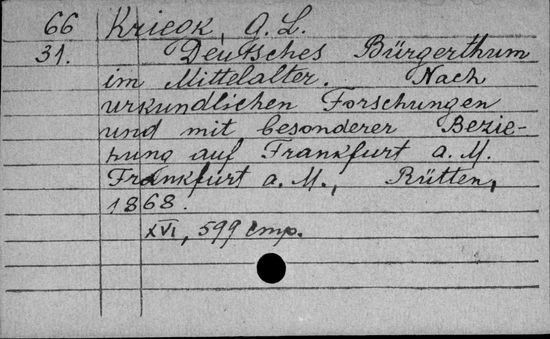 66 Kriegk, G. L.
31. Deutsches Bürgerthum
im Mittelalter. Nach
urkundlichen Forschungen
und mit besonderer Bezie-
hung auf Frankfurt a. M.
Frankfurt a. M., Rütten,
1868.
XVI, 599 стр.